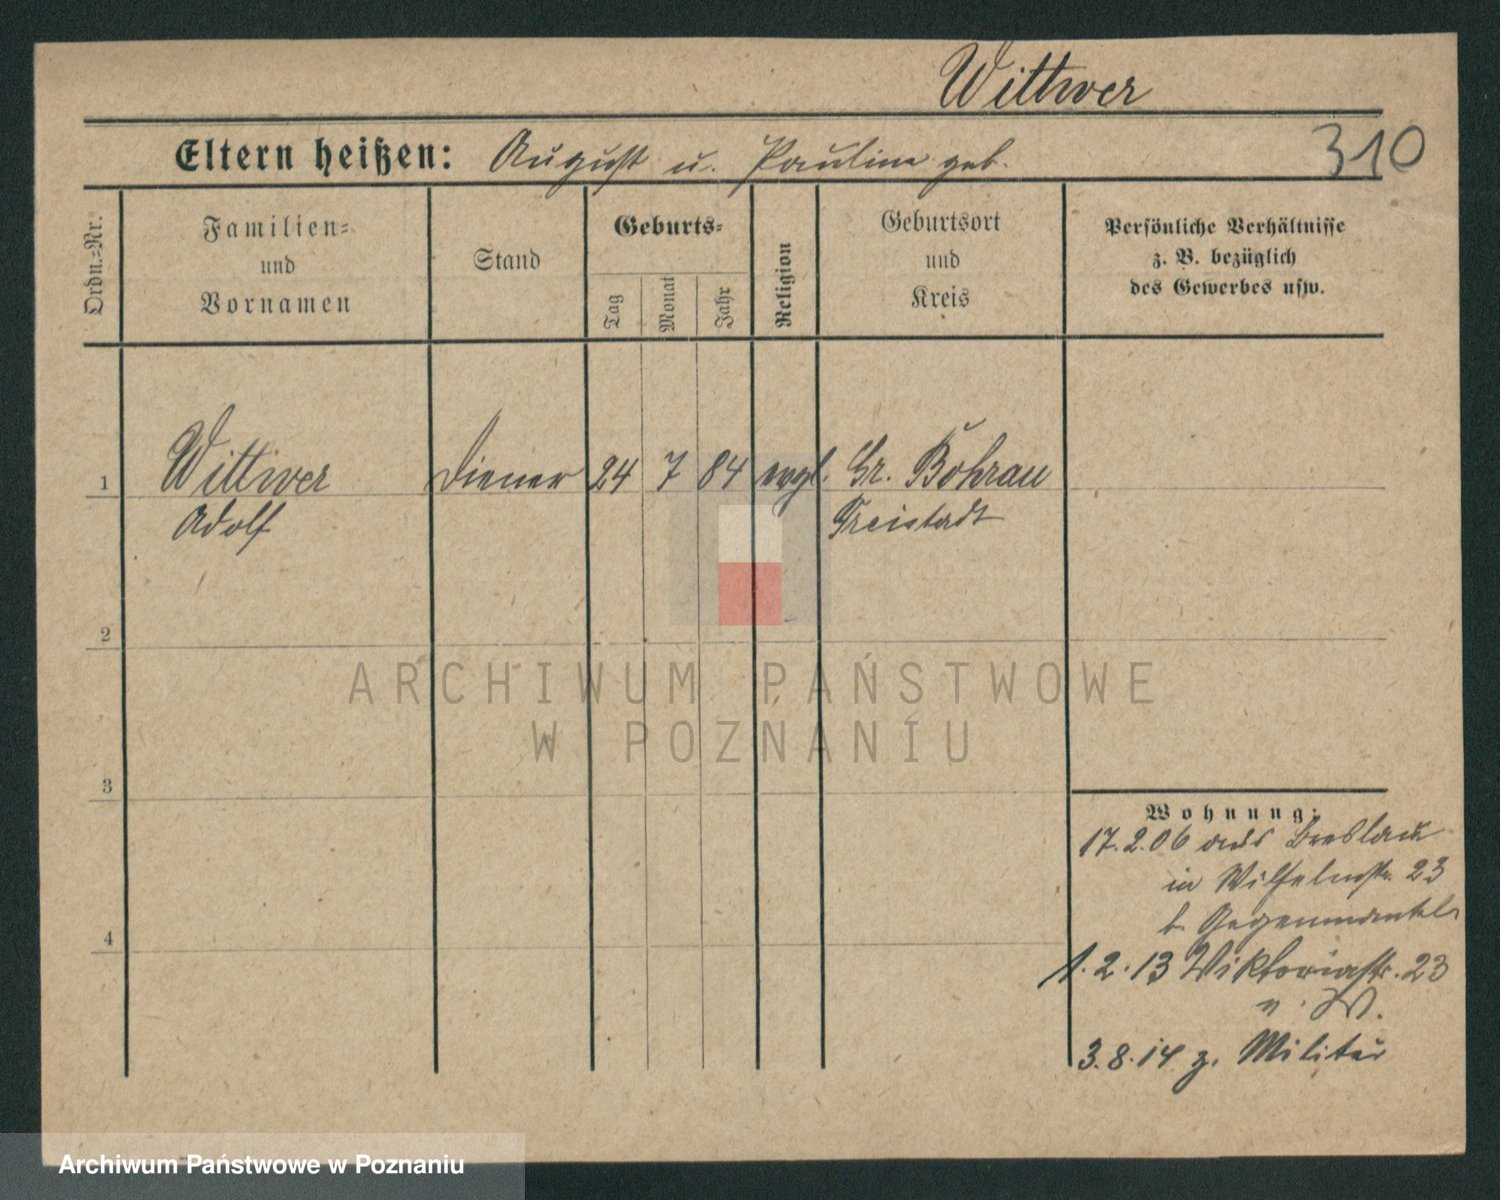 Wittwer
Eltern heißen: August u. Pauline geb.
310
Ordn.-Nr.
Familien-
und
Vornamen
Stand
Geburts-
Tag
Monat
Jahr
Religion
Geburtsort
und
Kreis
Persönliche Verhältnisse
z. B. bezüglich
des Gewerbes usw.
1 Wittwer Diener 24 7 84 evgl. Gr. Bohrau
Adolf Freistadt
2
3
4
ARCHIWUM PAŃSTWOWE
W POZNANIU
Wohnung:
17.2.06 aus Breslau
in Wilhelmstr. 23
b. Gegenmantel
1.2.13 Viktoriastr. 23
b. W.
3.8.14 z. Militär
Archiwum Państwowe w Poznaniu